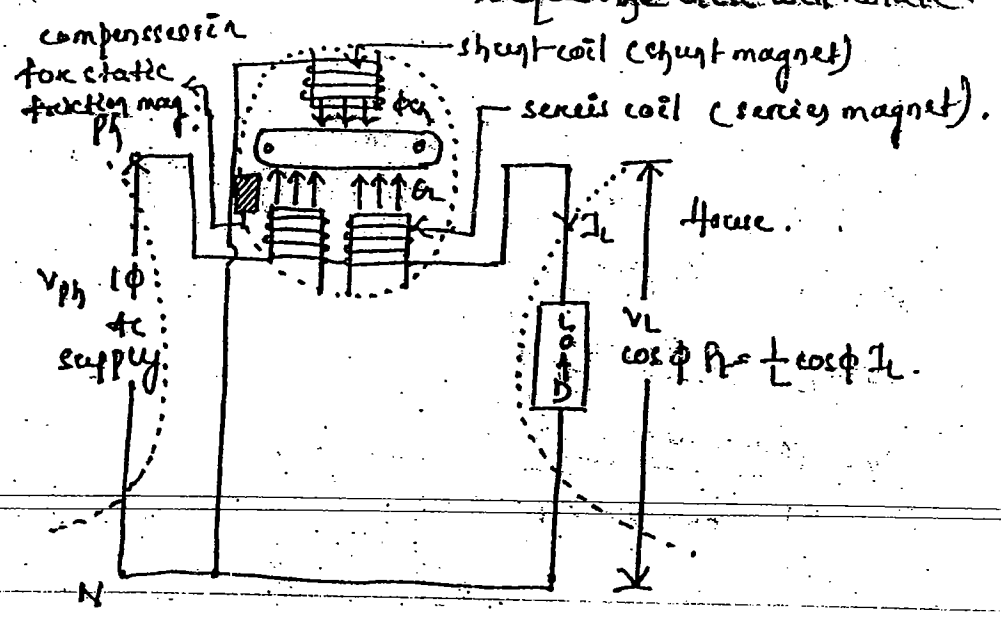 compenssessin
for static
friction mag.
Ph
shunt coil (shunt magnet)
sereis coil (series magnet).
House.
IL
Vph 1ϕ
Ac
supply
LOAD
VL
cosϕ PL = 1/L cosϕ IL.
N